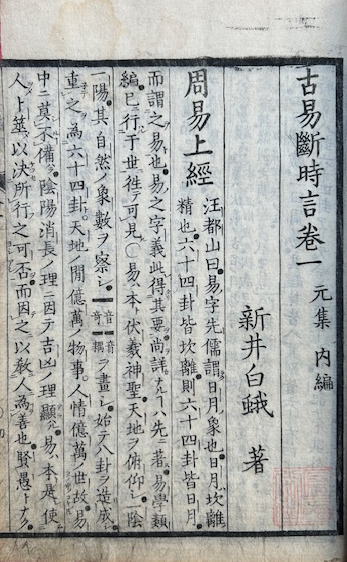 古易斷時言卷一 元集 内編
新井白蛾 著
周易上經
汪都山曰易字先儒謂日月ノ象也日月ハ坎離ノ
精也六十四卦皆坎離則六十四卦皆日月
而謂之易也易之字義此得其要尚詳ナルハ先ニ著ス易學類
編已行于世徃テ可見〇易ハ本ト伏羲神聖天地ヲ俯仰シ陰
一陽其自然ノ象數ヲ察シ ヲ畫シ始テ八卦ヲ造成シ
重之為六十四卦天地ノ間億萬ノ物事人情億萬ノ世故易
中ニ莫不備陰陽消長ノ理ニ因テ吉凶ノ理顯ル易ハ本ト是使
人卜筮以決所行之可否而因之以敎人為善也賢愚トナク